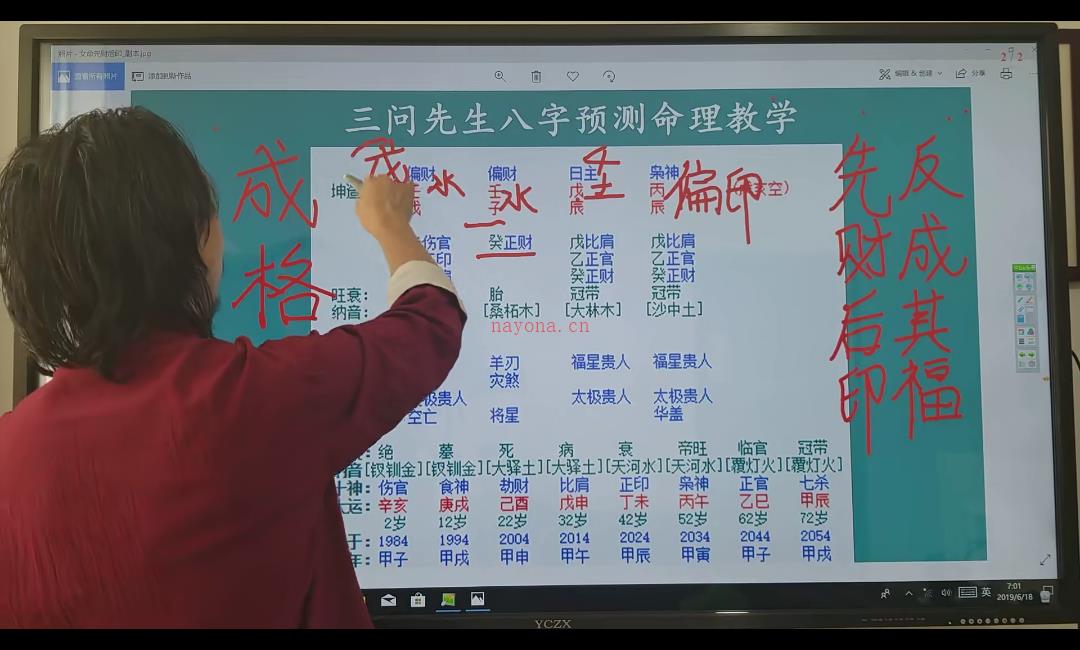 照片 - 女命先财后印_副本.jpg
查看所有照片 添加到新作品 编辑 & 创建 分享
2 / 2
三问先生八字预测命理教学
偏财 偏财 日主 枭神
坤造 壬 壬 戊 丙 (戌亥空)
戌 子 辰 辰
伤官 癸正财 戊比肩 戊比肩
正印 乙正官 乙正官
癸正财 癸正财
旺衰: 胎 冠带 冠带
纳音: [桑柘木] [大林木] [沙中土]
nayona.cn
羊刃 福星贵人 福星贵人
灾煞
极贵人 太极贵人 太极贵人
空亡 将星 华盖
绝 墓 死 病 衰 帝旺 临官 冠带
音[钗钏金] [钗钏金] [大驿土] [大驿土] [天河水] [天河水] [覆灯火] [覆灯火]
十神: 伤官 食神 劫财 比肩 正印 枭神 正官 七杀
大运: 辛亥 庚戌 己酉 戊申 丁未 丙午 乙巳 甲辰
2岁 12岁 22岁 32岁 42岁 52岁 62岁 72岁
于: 1984 1994 2004 2014 2024 2034 2044 2054
年: 甲子 甲戌 甲申 甲午 甲辰 甲寅 甲子 甲戌
成格
水 水 土 偏印
先财后印
反成其福
英
7:01
2019/6/18
YCZX